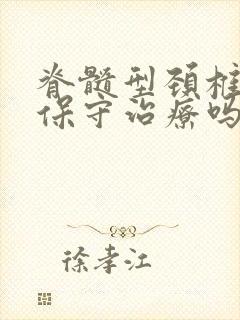 脊髓型颈椎
保守治疗吗
徐孝江